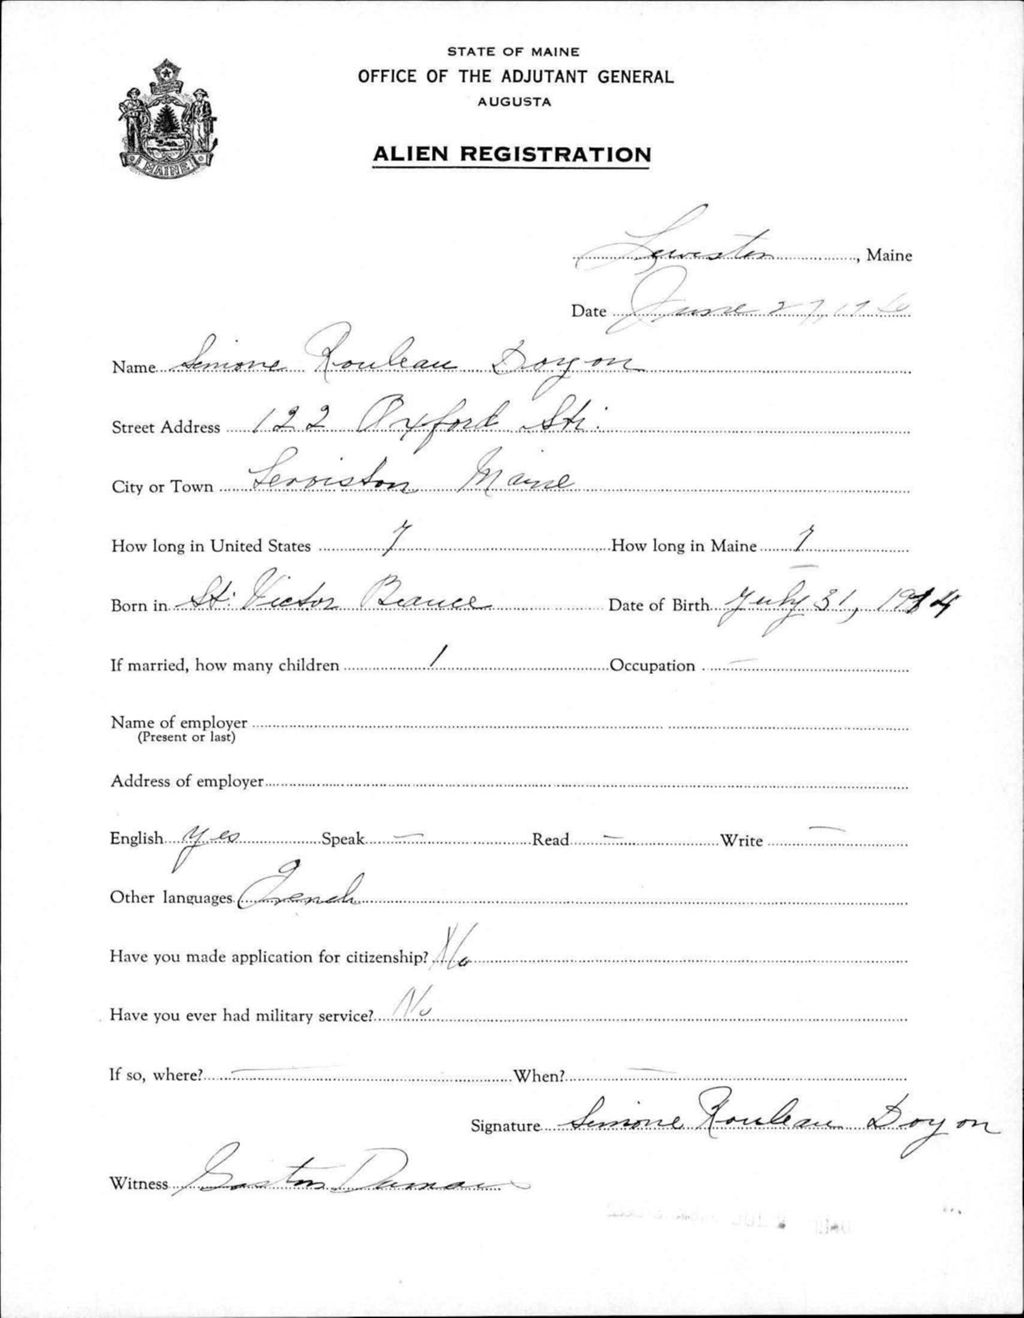 STATE OF MAINE
OFFICE OF THE ADJUTANT GENERAL
AUGUSTA
MAINE
ALIEN REGISTRATION
Lewiston, Maine
Date June 27, 1940
Name Simone Rouleau Doyon
Street Address 122 Oxford St.
City or Town Lewiston Maine
How long in United States 7 How long in Maine 7
Born in St. Victor Beauce Date of Birth July 31, 1914
If married, how many children 1 Occupation —
Name of employer
(Present or last)
Address of employer
English yes Speak — Read — Write —
Other languages French
Have you made application for citizenship? No
Have you ever had military service? No
If so, where? — When? —
Signature Simone Rouleau Doyon
Witness Gaston Dumais